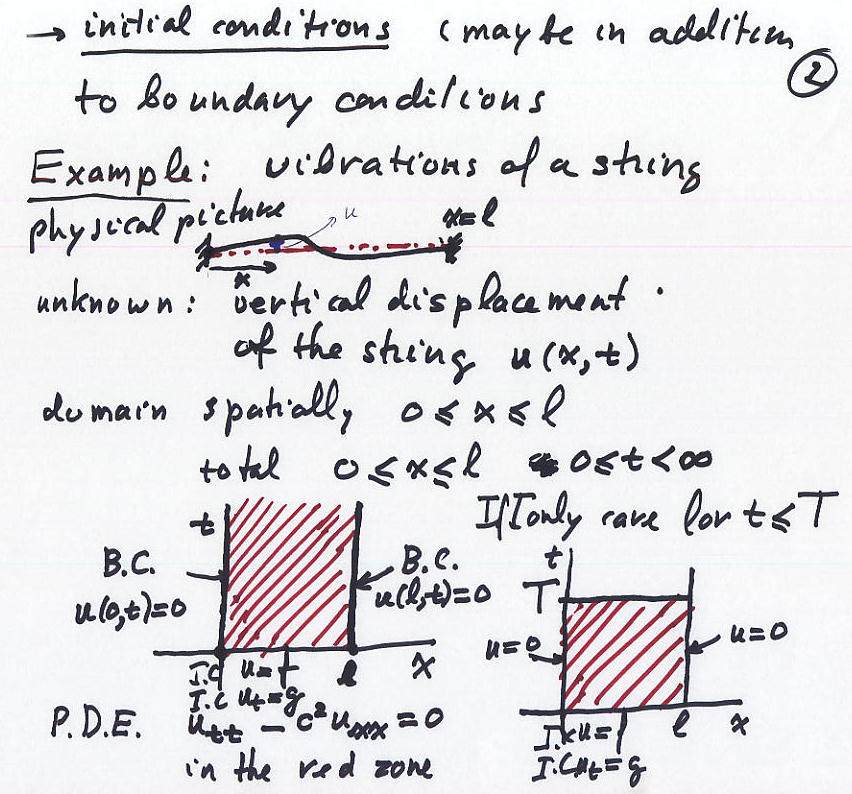 → initial conditions (may be in addition
to boundary conditions
②
Example: vibrations of a string
physical picture
u
x=l
x
unknown: vertical displacement
of the string u(x,t)
domain spatially 0≤x≤l
total 0≤x≤l 0≤t<∞
If I only care for t≤T
t
B.C.
u(0,t)=0
B.C.
u(l,t)=0
I.C u=f
I.C ut=g
l
x
t
T
u=0
u=0
I.C u=f
I.C ut=g
l
x
P.D.E. utt - c²uxx = 0
in the red zone